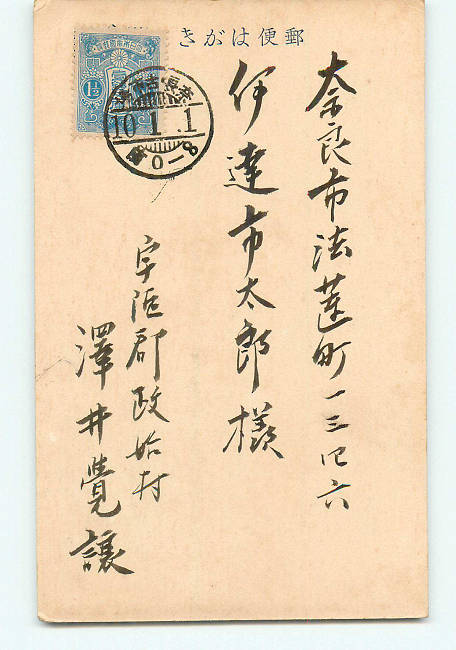 郵便はがき
奈良市法蓮町一三四六
伊達市太郎様
宇陀郡政始村
澤井覺譲
1½
10.1.1
前0-8